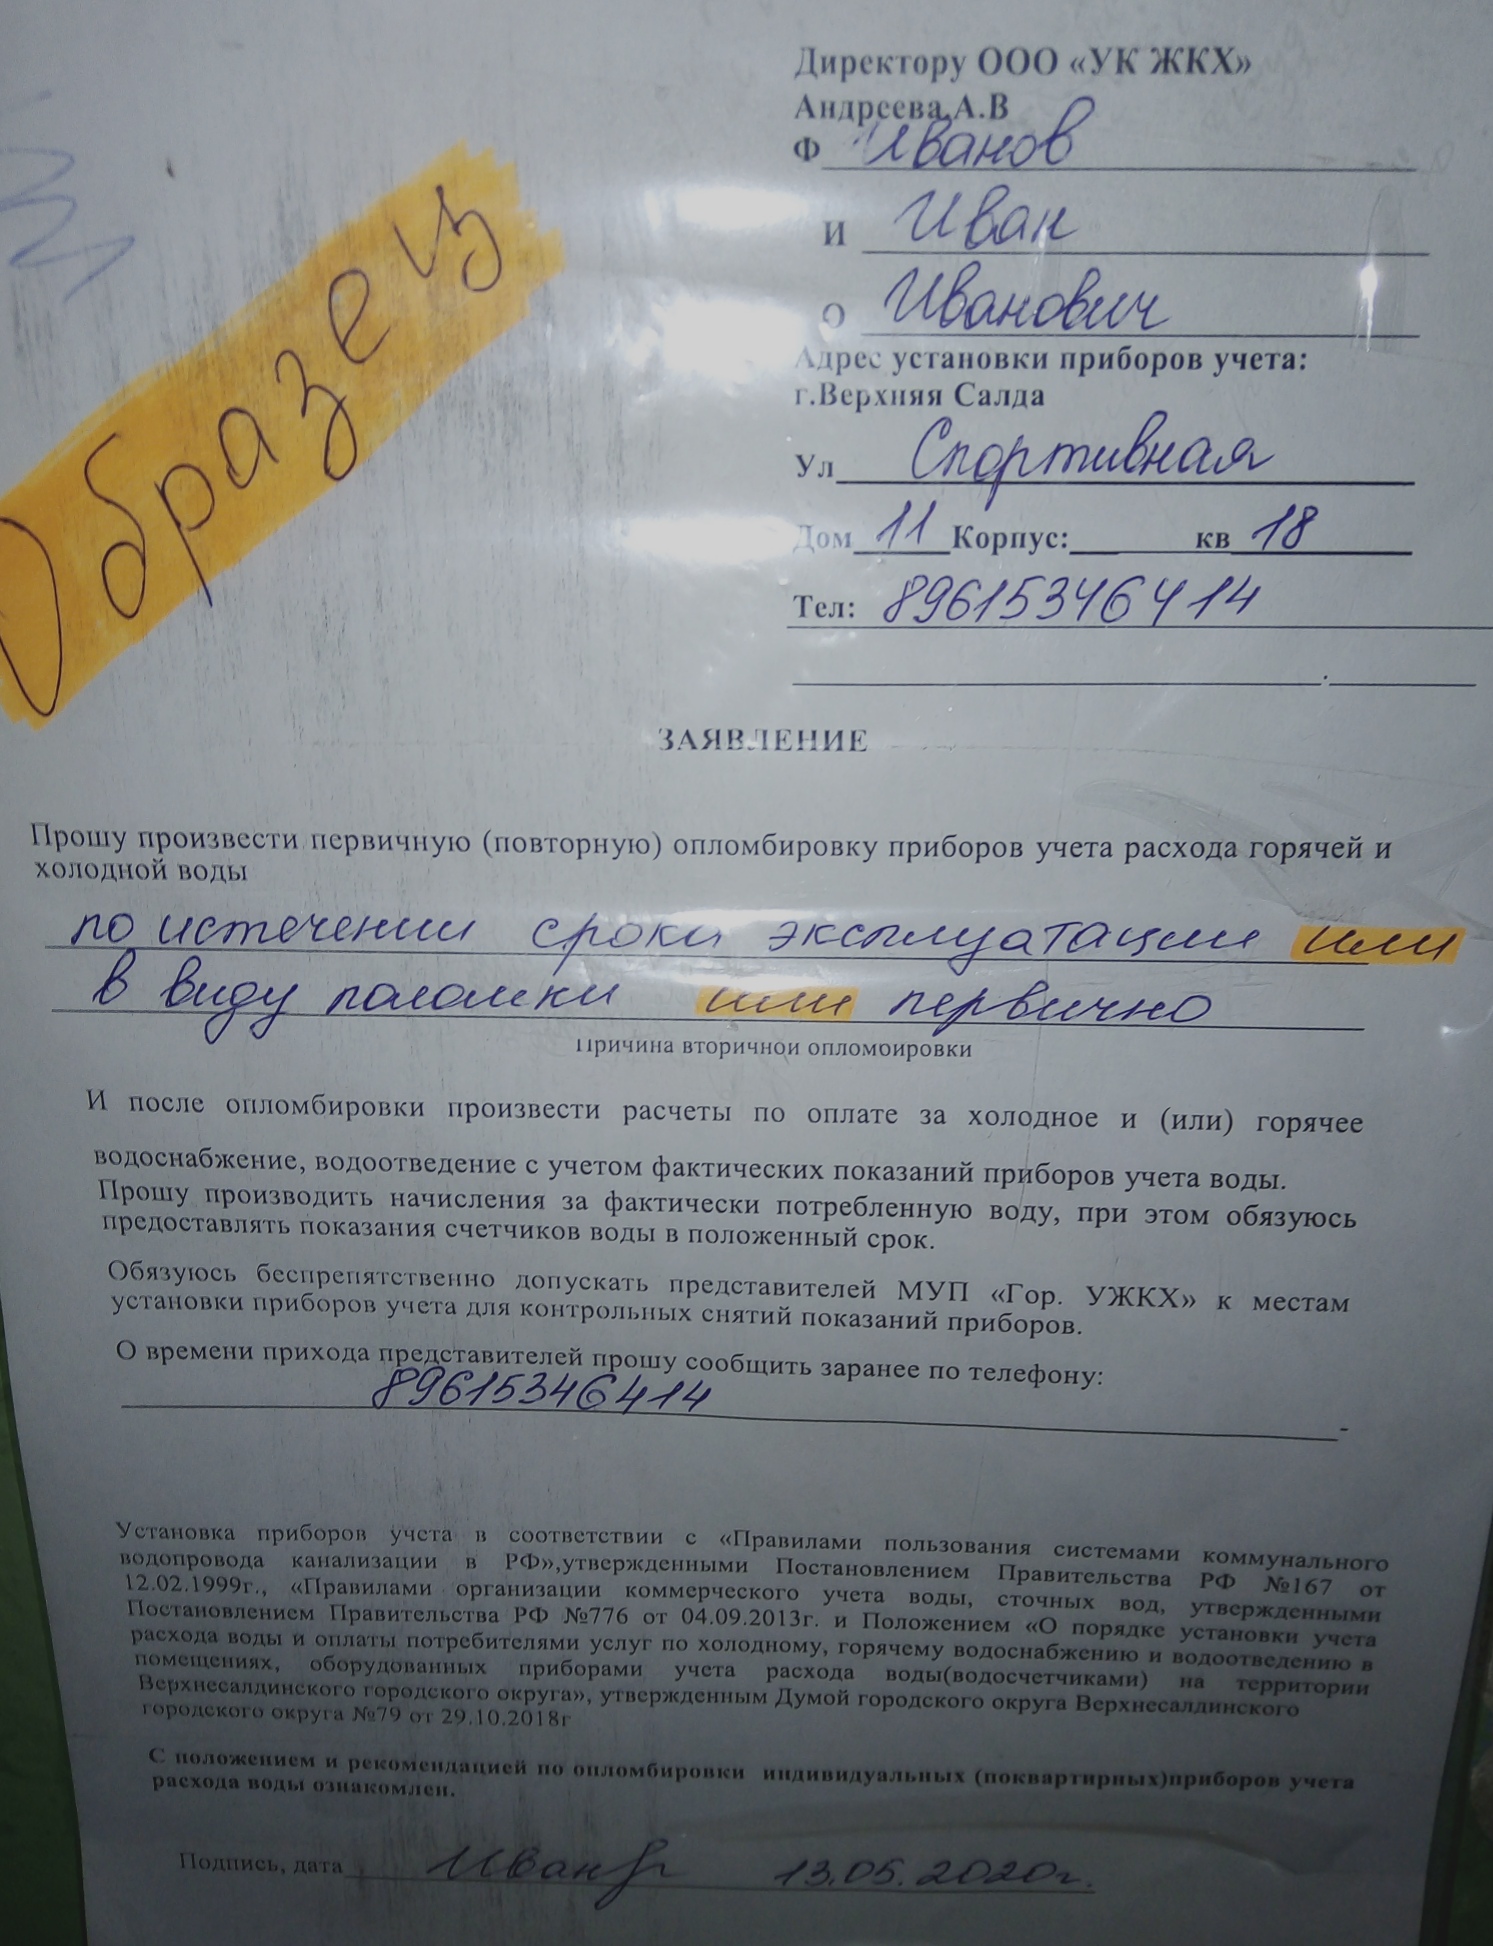 Образец
Директору ООО «УК ЖКХ»
Андреева.А.В
Ф Иванов
И Иван
О Иванович
Адрес установки приборов учета:
г.Верхняя Салда
Ул Спортивная
Дом 11 Корпус: кв 18
Тел: 89615346414
ЗАЯВЛЕНИЕ
Прошу произвести первичную (повторную) опломбировку приборов учета расхода горячей и
холодной воды
по истечении срока эксплуатации или
в виду поломки или первично
Причина вторичной опломбировки
И после опломбировки произвести расчеты по оплате за холодное и (или) горячее
водоснабжение, водоотведение с учетом фактических показаний приборов учета воды.
Прошу производить начисления за фактически потребленную воду, при этом обязуюсь
предоставлять показания счетчиков воды в положенный срок.
Обязуюсь беспрепятственно допускать представителей МУП «Гор. УЖКХ» к местам
установки приборов учета для контрольных снятий показаний приборов.
О времени прихода представителей прошу сообщить заранее по телефону:
89615346414
Установка приборов учета в соответствии с «Правилами пользования системами коммунального
водопровода канализации в РФ»,утвержденными Постановлением Правительства РФ №167 от
12.02.1999г., «Правилами организации коммерческого учета воды, сточных вод, утвержденными
Постановлением Правительства РФ №776 от 04.09.2013г. и Положением «О порядке установки учета
расхода воды и оплаты потребителями услуг по холодному, горячему водоснабжению и водоотведению в
помещениях, оборудованных приборами учета расхода воды(водосчетчиками) на территории
Верхнесалдинского городского округа», утвержденным Думой городского округа Верхнесалдинского
городского округа №79 от 29.10.2018г
С положением и рекомендацией по опломбировки индивидуальных (поквартирных)приборов учета
расхода воды ознакомлен.
Подпись, дата 13.05.2020г.